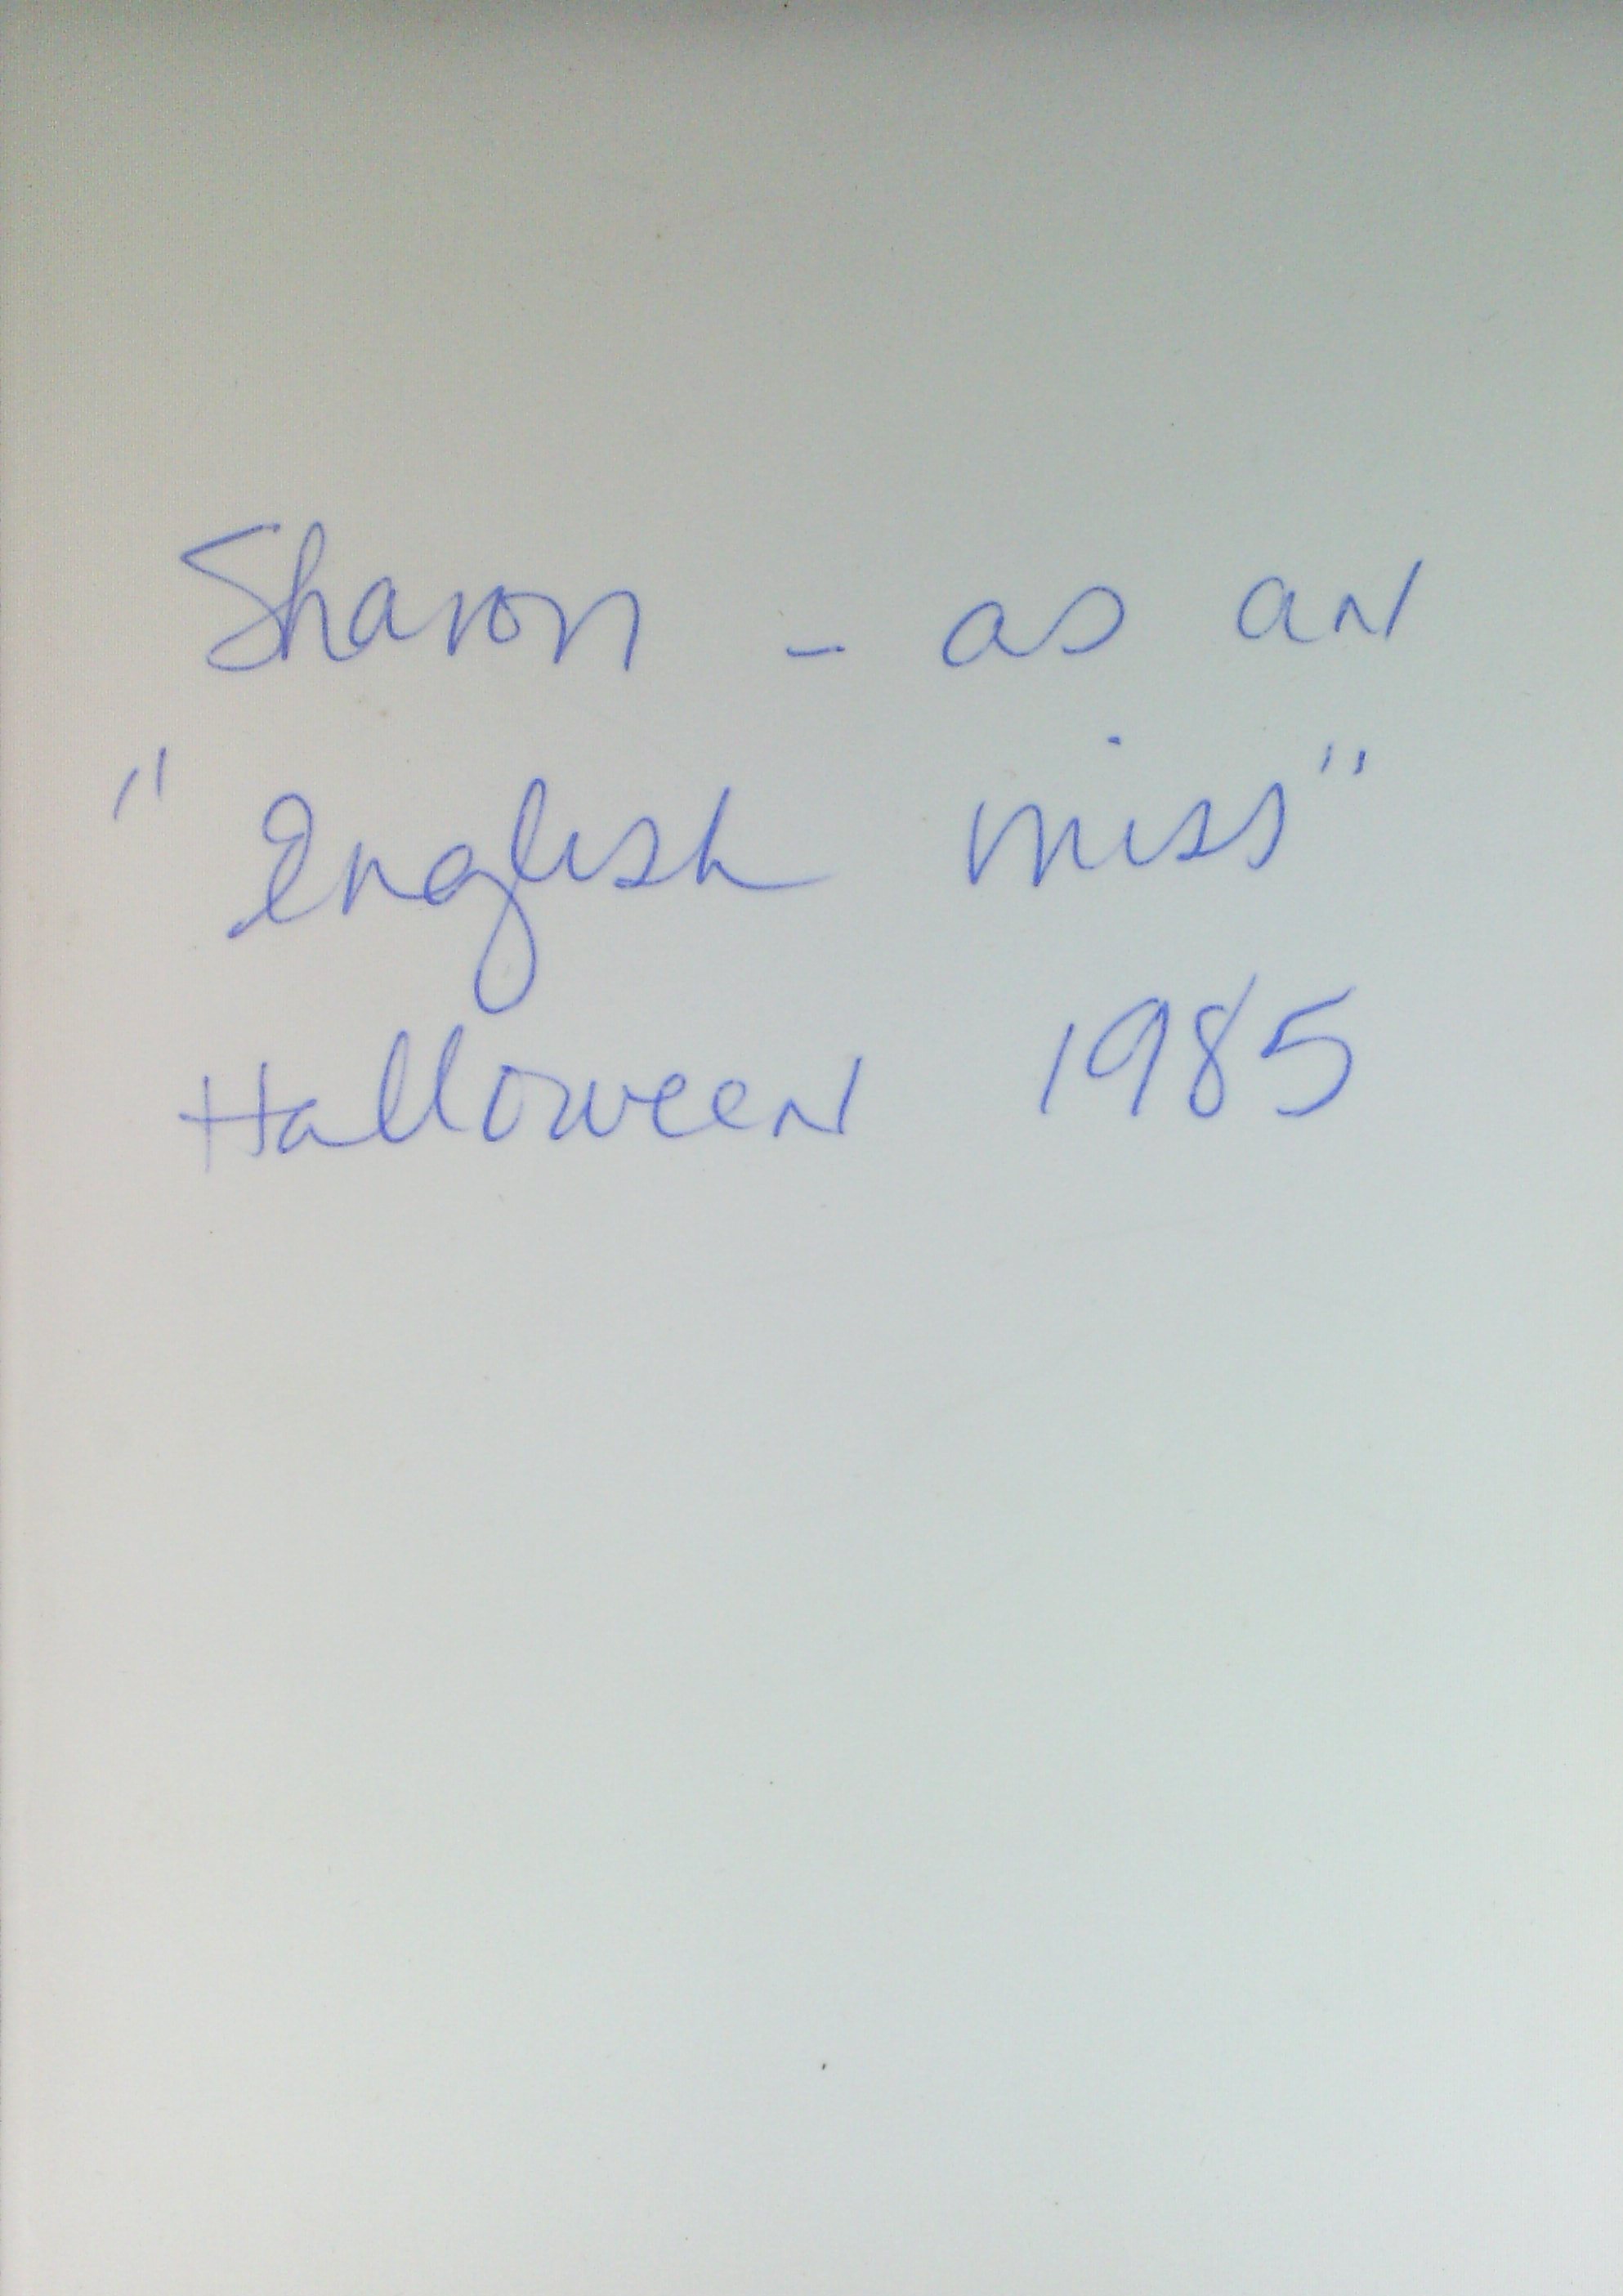 Sharon - as an
"English miss"
Halloween 1985